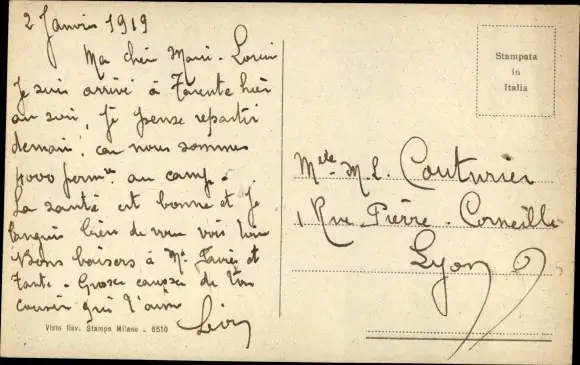 2 Janvier 1919
Ma chère Marie-Louise
Je suis arrivé à Tarente hier
au soir, je pense repartir
demain, car nous sommes
4000 perm^res au camp.
La santé est bonne et je
languis bien de vous voir tous
Bons baisers à Mr Xavier et
Tante - Grosses caresses de ton
cousin qui t'aime
Léon
Visto Rev. Stampa Milano - 6510
Stampata
in
Italia
Melle M. L. Couturier
1 Rue Pierre-Corneille
Lyon